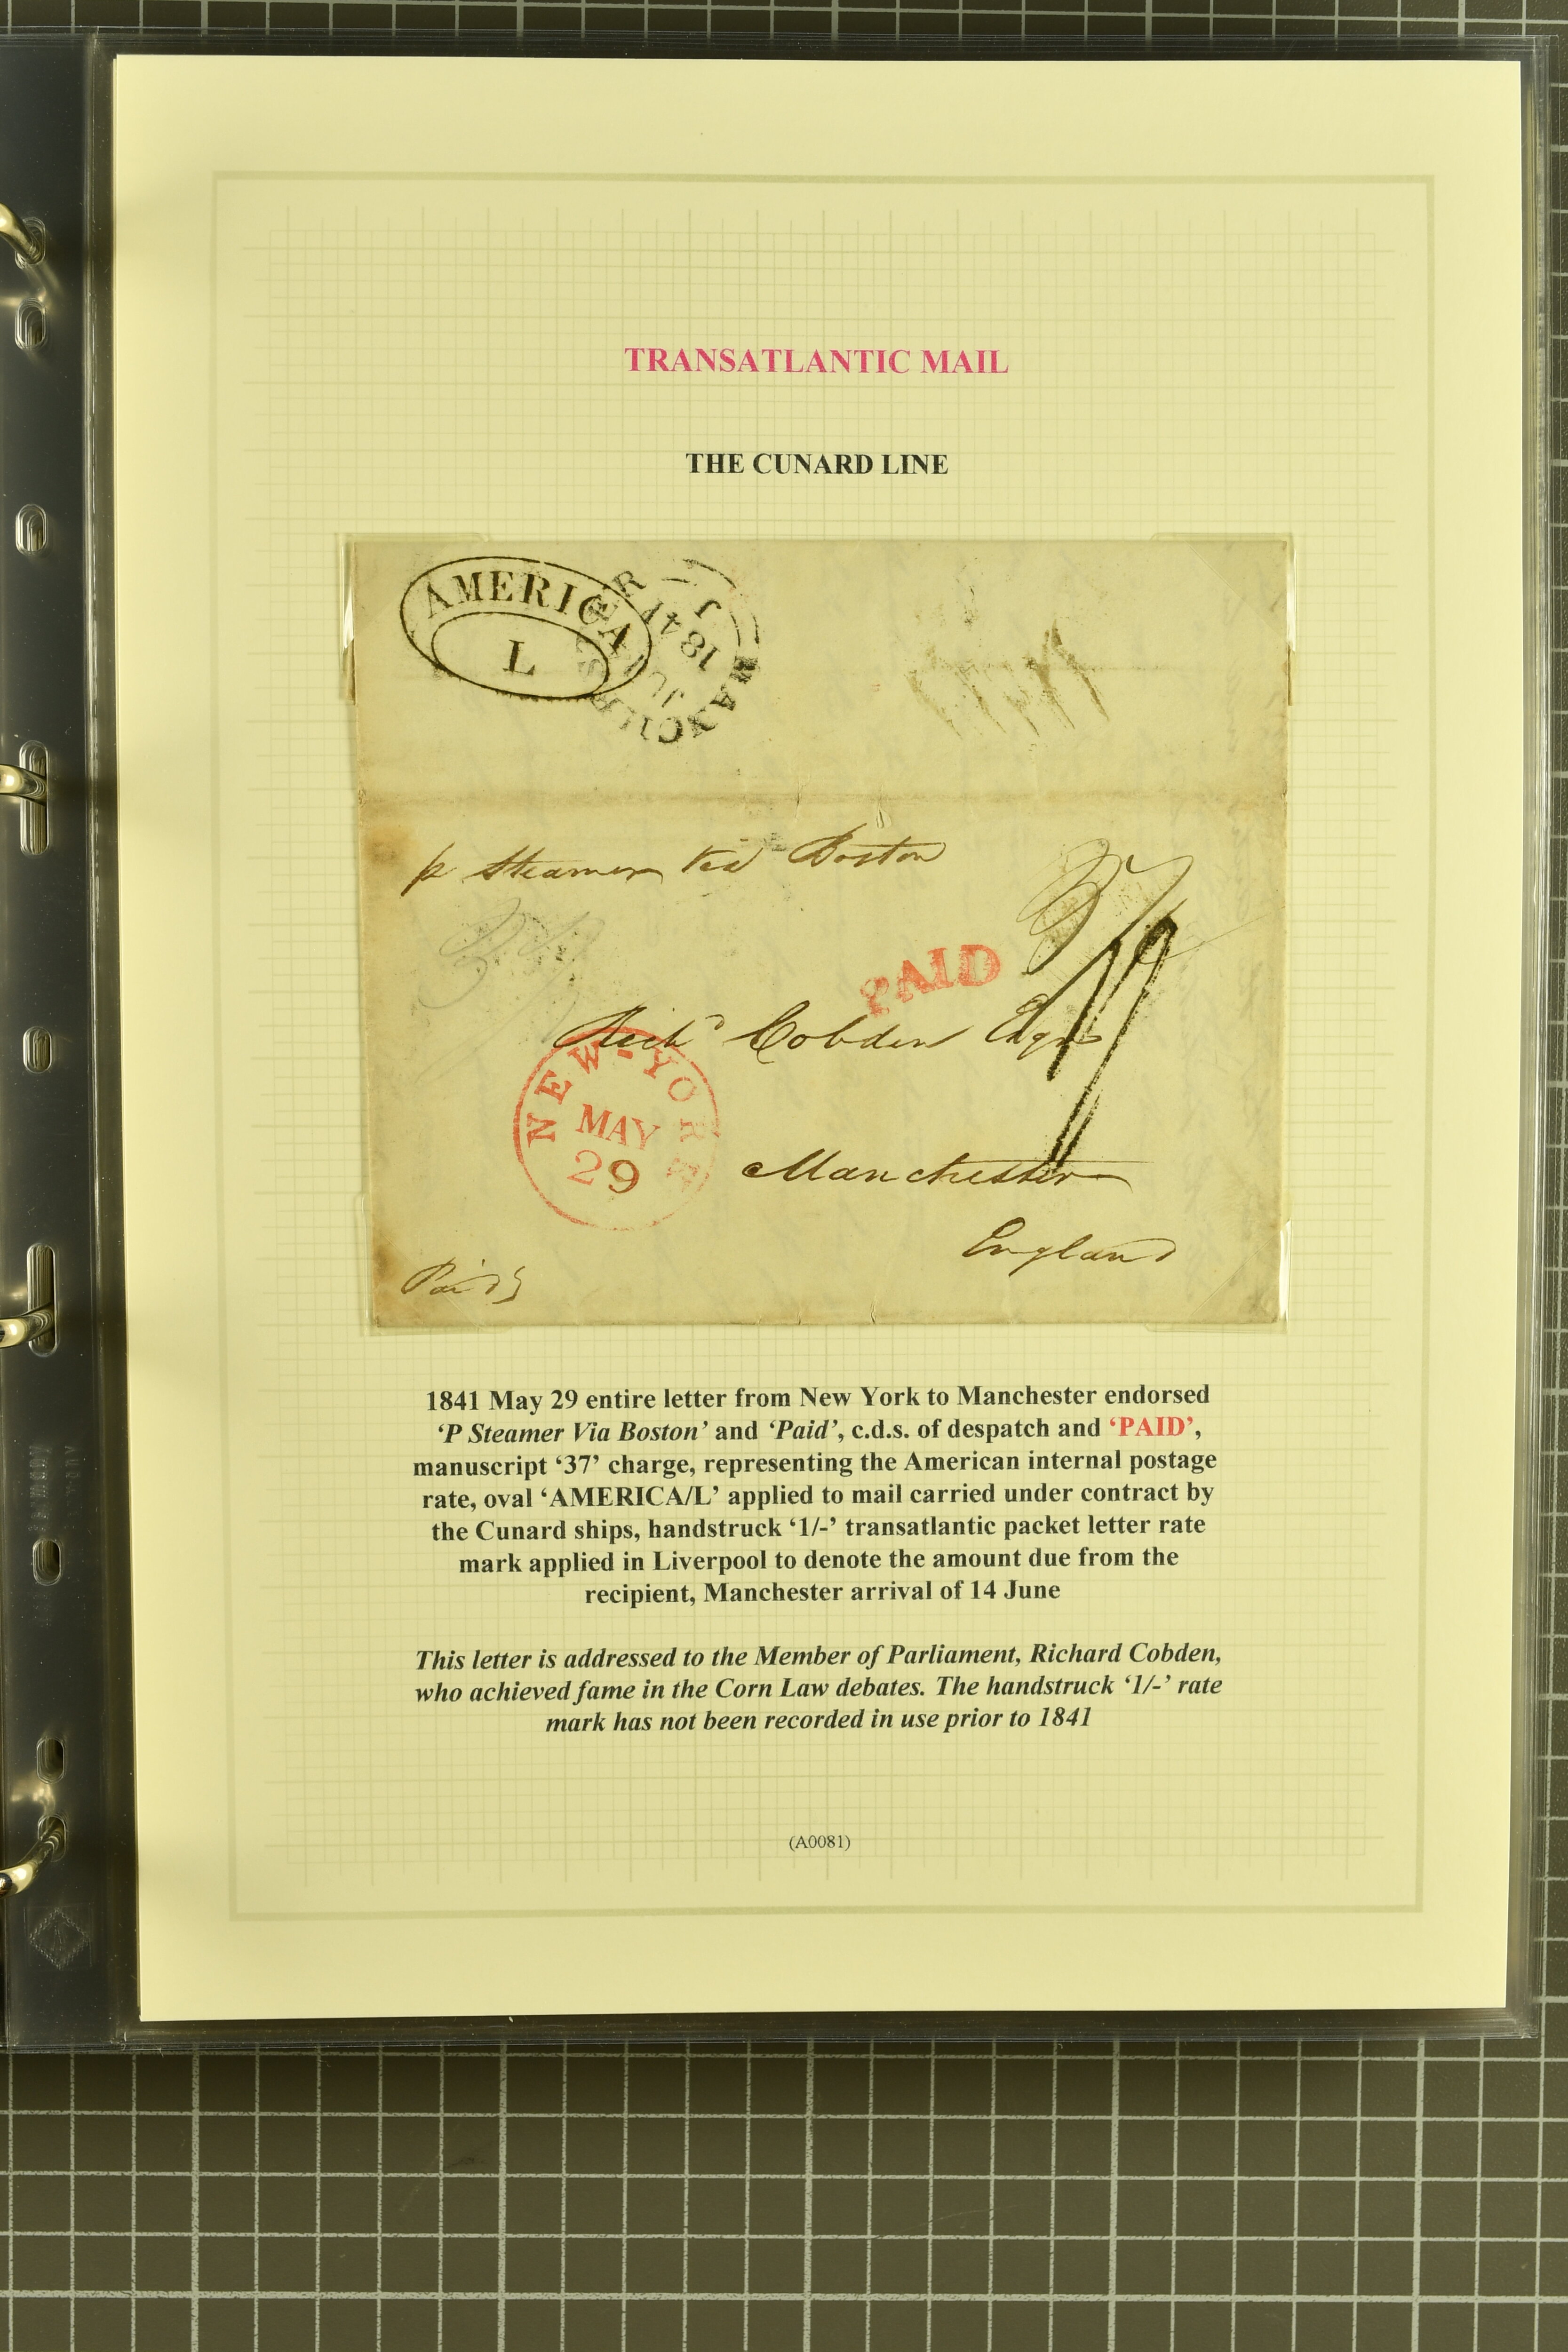 TRANSATLANTIC MAIL
THE CUNARD LINE
AMERICA
L
1841
p Steamer Via Boston
37
PAID
Richd Cobden Esqre
NEW-YORK
MAY
29
Manchester
England
Paid
1841 May 29 entire letter from New York to Manchester endorsed
‘P Steamer Via Boston’ and ‘Paid’, c.d.s. of despatch and ‘PAID’,
manuscript ‘37’ charge, representing the American internal postage
rate, oval ‘AMERICA/L’ applied to mail carried under contract by
the Cunard ships, handstruck ‘1/-’ transatlantic packet letter rate
mark applied in Liverpool to denote the amount due from the
recipient, Manchester arrival of 14 June
This letter is addressed to the Member of Parliament, Richard Cobden,
who achieved fame in the Corn Law debates. The handstruck ‘1/-’ rate
mark has not been recorded in use prior to 1841
(A0081)